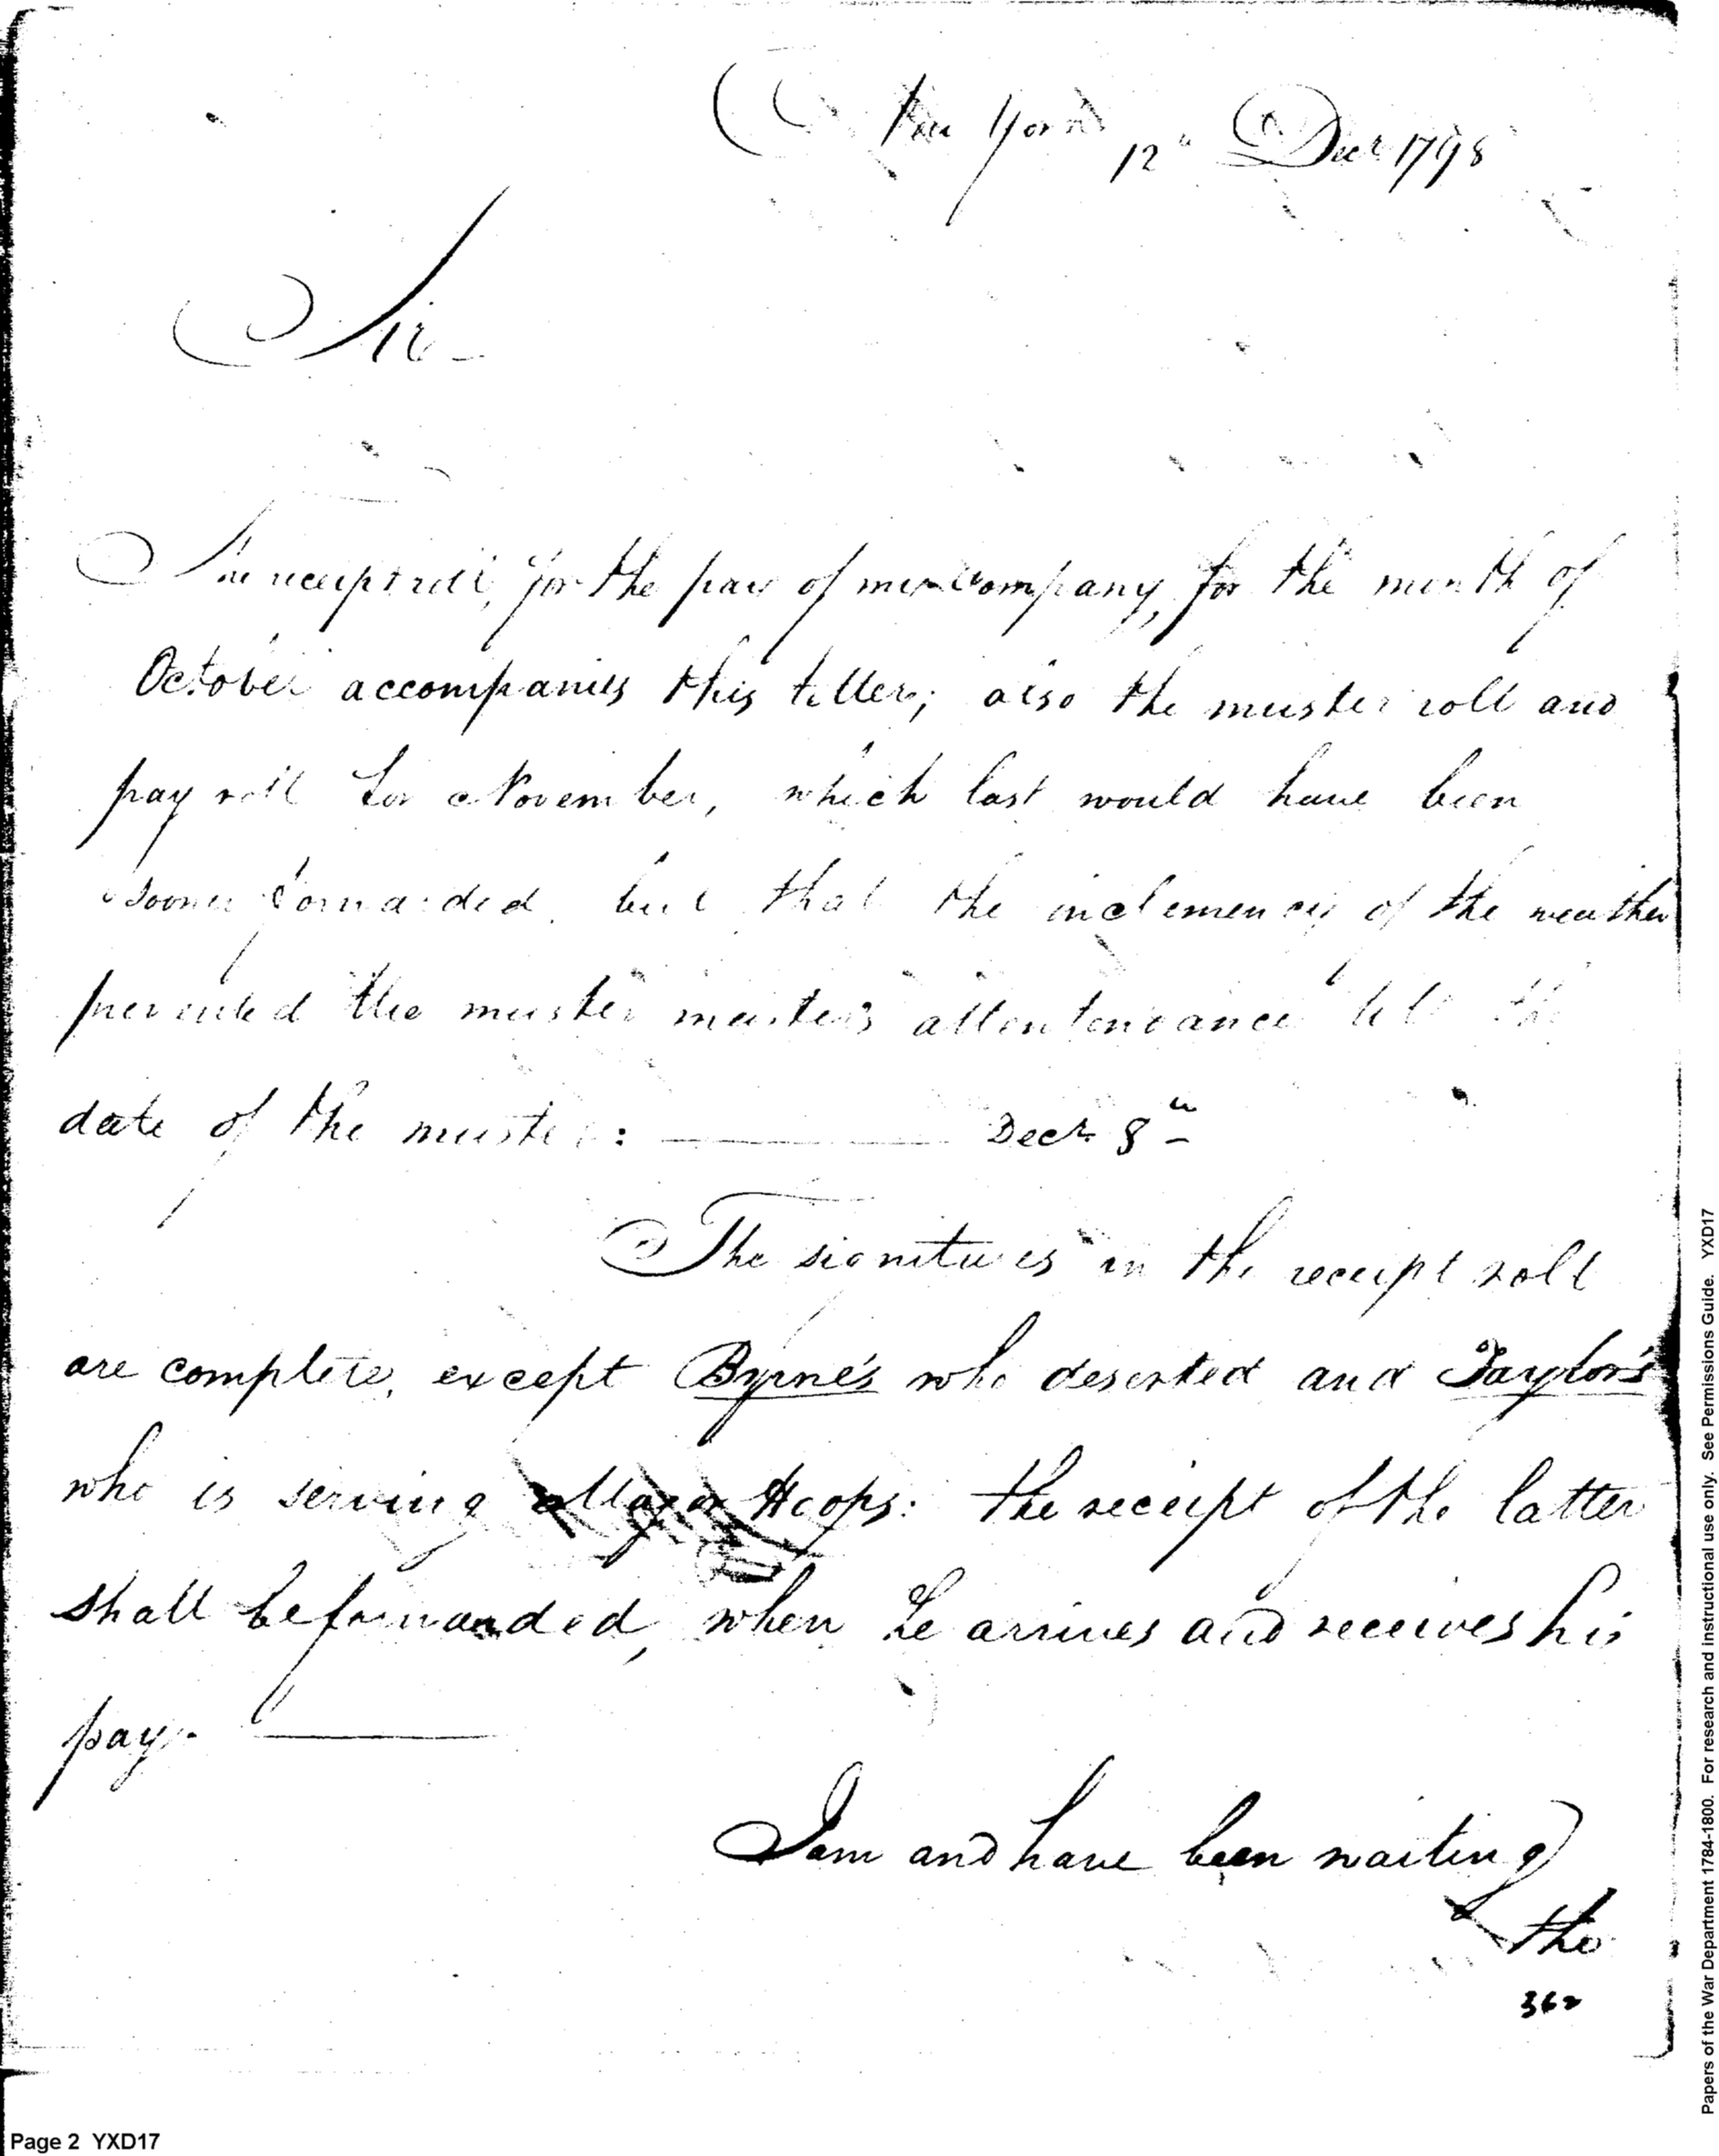 New York 12th Decr 1798
Sir
The receipt roll, for the pay of my company, for the month of
October accompanies this letter; also the muster roll and
pay roll for November, which last would have been
sooner forwarded, but that the inclemency of the weather
prevented the muster master's attentendance till the
date of the muster: Decr 8th
The signitures in the receipt roll
are complete, except Byrne's who deserted and Taylor's
who is serving Major Hoops: the receipt of the latter
shall be forwarded, when he arrives and receives his
pay.
I am and have been waiting
the
362
Page 2 YXD17
Papers of the War Department 1784-1800. For research and instructional use only. See Permissions Guide. YXD17